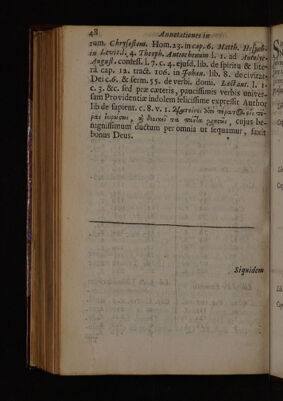 48 Annotationes in
rum. Chrysostom. Hom. 23. in cap. 6. Matth. Hesych.
in Levit. l. 4. Theoph. Antiochenum l. 1. ad Autolyc.
August. confess. l. 7. c. 4. ejusd. lib. de spiritu & lite-
râ cap. 12. tract. 106. in Johan. lib. 8. de civitate
Dei c. 6. & serm. 55. de verbi. domi. Lactant. l. 1.
c. 3. &c. sed præ cæteris, paucissimis verbis univer-
sam Providentiæ indolem felicissime expressit Author
lib de sapient. c. 8. v. 1. Διατείνει ἀπὸ πέρατος εἰς πέ-
ρας εὐρώστως, καὶ διοικεῖ τὰ πάντα χρηστῶς, cujus be-
nignissimum ductum per omnia ut sequamur, faxit
bonus Deus.
Siquidem